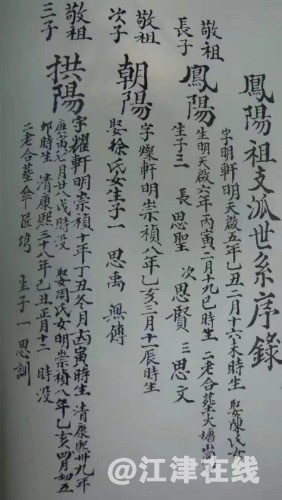 鳳陽祖支派世系序錄
敬祖長子
鳳陽
字明軒明天啟五年乙丑二月十六未時生 娶陳氏女
生明天啟六年丙寅二月十九巳時生 二老合葬大塘
生子三 長思聖 次思賢 三思文
敬祖次子
朝陽
字燦軒明崇禎八年乙亥三月十一辰時生
娶徐氏女生子一 思禹 無傳
敬祖三子
拱陽
字耀軒明崇禎十年丁丑冬月 寅時生 清康熙卅九年
庚寅七月廿八戌時没 娶周氏女明崇禎八年乙亥四月初五
卯時生 清康熙三十八年己丑正月十二 時没
二老合葬傘匠塆 生子一思訓
@江津在线